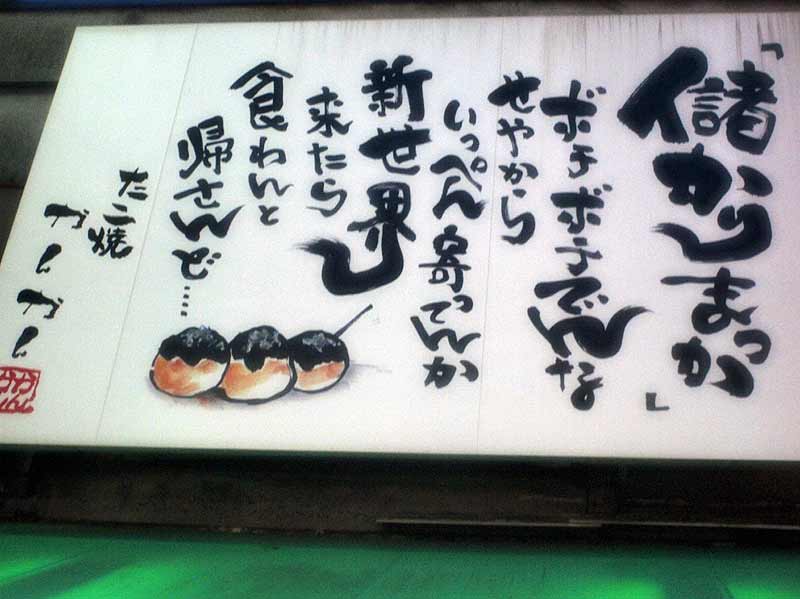 「儲かりまっか」
ボチボチでんな
せやから
いっぺん寄ってんか
新世界
来たら
食わんと
帰さんど……
たこ焼
かんかん